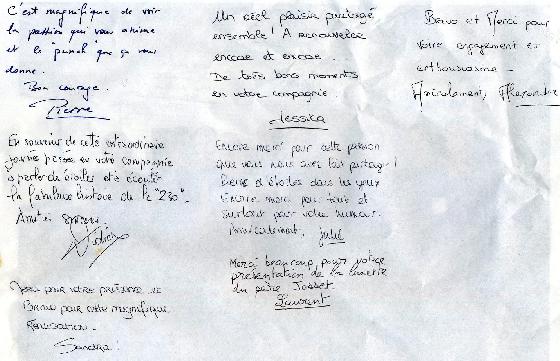 C'est magnifique de voir
la passion qui vous anime
et le punch que ça vous
donne.
Bon courage.
Pierre
Un réel plaisir partagé
ensemble ! A renouveler
encore et encore.
De très bons moments
en votre compagnie.
Jessica
Bravo et Merci pour
votre engagement et
enthousiasme
Amicalement,
En souvenir de cette extraordinaire
journée passée en votre compagnie
à parler étoiles et à écouter
la fabuleuse histoire de la "230".
Encore merci pour cette passion
que vous nous avez fait partager !
Pleins d'étoiles dans les yeux
Encore merci pour tout et
surtout pour votre humour.
Amicalement, Julie
Merci beaucoup pour votre
présentation de la lunette
du père Josset
Laurent
Merci pour votre présence
Bravo pour cette magnifique
Réalisation.
Sandra